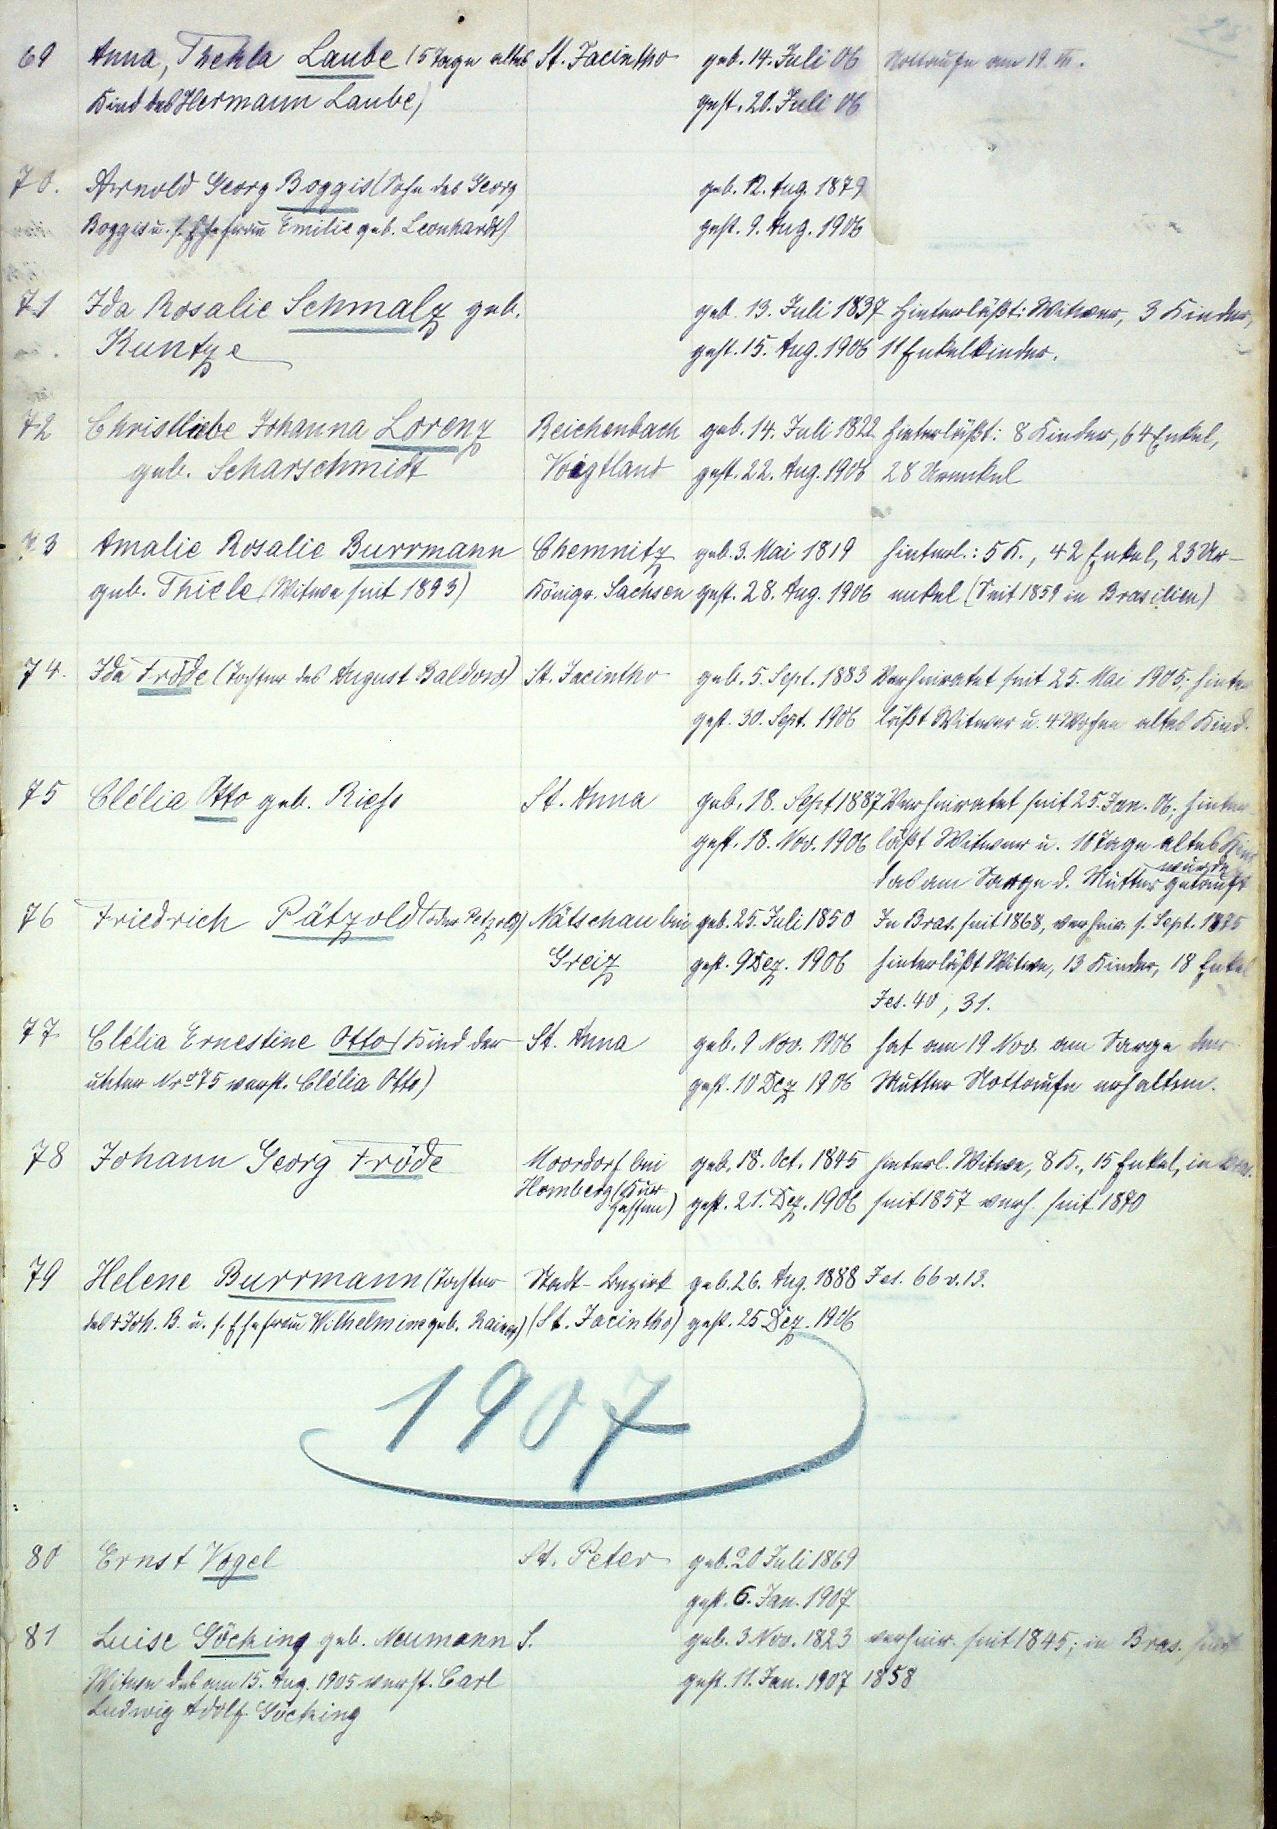 69 Anna, Thekla Laube (5 Tage altes St. Jacintho geb. 14. Juli 06 Nottaufe am 19. VII.
Kind des Hermann Laube) gest. 20. Juli 06
70. Arnold Georg Boggis (Sohn des Georg geb. 12. Aug. 1879
Boggis u. s. Ehefrau Emilie geb. Leonhardt) gest. 9. Aug. 1906
71 Ida Rosalie Schmalz geb. geb. 13. Juli 1837 Hinterläßt: Witwer, 3 Kinder,
Kuntze gest. 15. Aug. 1906 11 Enkelkinder.
72 Christliebe Johanna Lorenz Reichenbach geb. 14. Juli 1822 hinterläßt: 8 Kinder, 64 Enkel,
geb. Scharschmidt Voigtland gest. 22. Aug. 1906 28 Urenkel
73 Amalie Rosalie Burrmann Chemnitz geb. 3. Mai 1819 hinterl.: 5 K., 42 Enkel, 23 Ur-
geb. Thiele (Witwe seit 1893) Königr. Sachsen gest. 28. Aug. 1906 enkel (Seit 1859 in Brasilien)
74. Ida Fröde (Tochter des August Baldow) St. Jacintho geb. 5. Sept. 1883 Verheiratet seit 25. Mai 1905; hinter
gest. 30. Sept. 1906 läßt Witwer u. 4 Wochen altes Kind.
75 Clélia Otto geb. Riess St. Anna geb. 18. Sept 1887 Verheiratet seit 25. Jan. 06; hinter
gest. 18. Nov. 1906 läßt Witwer u. 10 Tage altes Kind
das am Sarge d. Mutter getauft wurde
76 Friedrich Pätzold (oder Petzold) Nätschau bei geb. 25. Juli 1850 In Bras. seit 1868, verheir. s. Sept. 1875
Greiz gest. 9 Dez. 1906 hinterläßt Witwe, 13 Kinder, 18 Enkel
Jes. 40, 31.
77 Clélia Ernestine Otto (Kind der St. Anna geb. 9 Nov. 1906 hat am 19 Nov. am Sarge der
unter Nro 75 verst. Clélia Otto) gest. 10 Dez 1906 Mutter Nottaufe erhalten.
78 Johann Georg Fröde Moordorf bei geb. 18. Oct. 1845 hinterl. Witwe, 8 K., 15 Enkel, in Bras.
Homberg (Kur
hessen) gest. 21. Dez. 1906 seit 1857 verh. seit 1870
79 Helene Burrmann (Tochter Stadt-Bezirk geb. 26. Aug. 1888 Jes. 66 v. 13.
des † Joh. B. u. s. Ehefrau Wilhelmine geb.) (St. Jacintho) gest. 25 Dez. 1906
1907
80 Ernst Vogel St. Peter geb. 20 Juli 1869
gest. 6. Jan. 1907
81 Luise Göcking geb. Neumann S. geb. 3 Nov. 1823 verheir. seit 1845; in Bras. seit
Witwe des am 15. Aug. 1905 verst. Carl gest. 11. Jan. 1907 1858
Ludwig Adolf Göcking